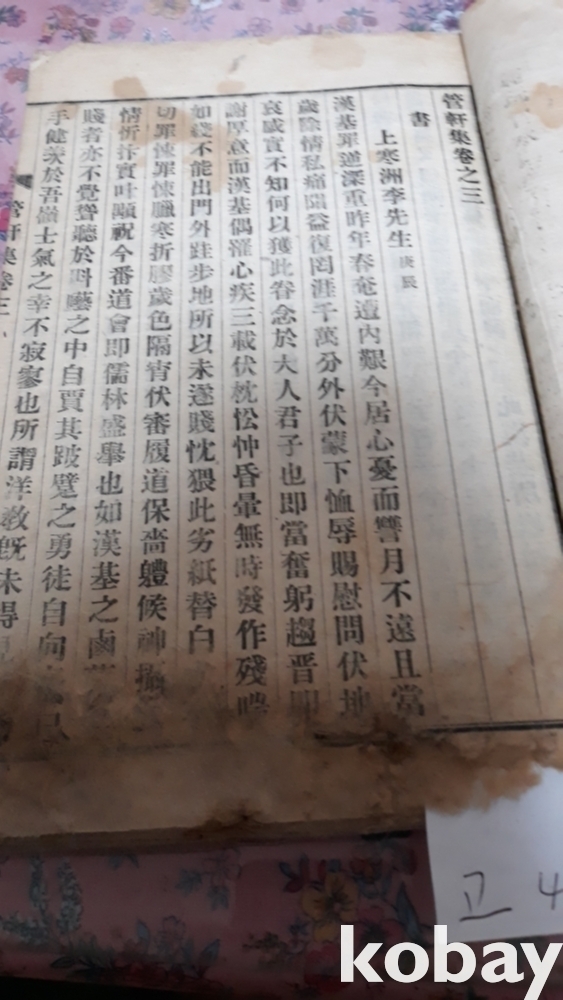 管軒集卷之三
書
上寒洲李先生 庚辰
漢基罪逆深重昨年春奄遭內艱今居心憂而讐月不遠且當
歲除情私痛隕益復罔涯千萬分外伏蒙下恤辱賜慰問伏地
哀感實不知何以獲此眷念於大人君子也即當奮躬趨晋
謝厚意而漢基偶罹心疾三載伏枕忪忡昏暈無時發作殘
如綫不能出門外跬步地所以未遂賤忱猥此劣紙替白
切罪悚罪悚臘寒折膠歲色隔宵伏審履道保嗇軆候神
情忻抃實叶顒祝今番道會即儒林盛舉也如漢基之鹵
賤者亦不覺聳聽於斗嚥之中自賈其跛躄之勇徒自向
手健羨於吾嶺士氣之幸不寂寥也所謂洋敎旣未得
管軒集卷三
고 4
kobay